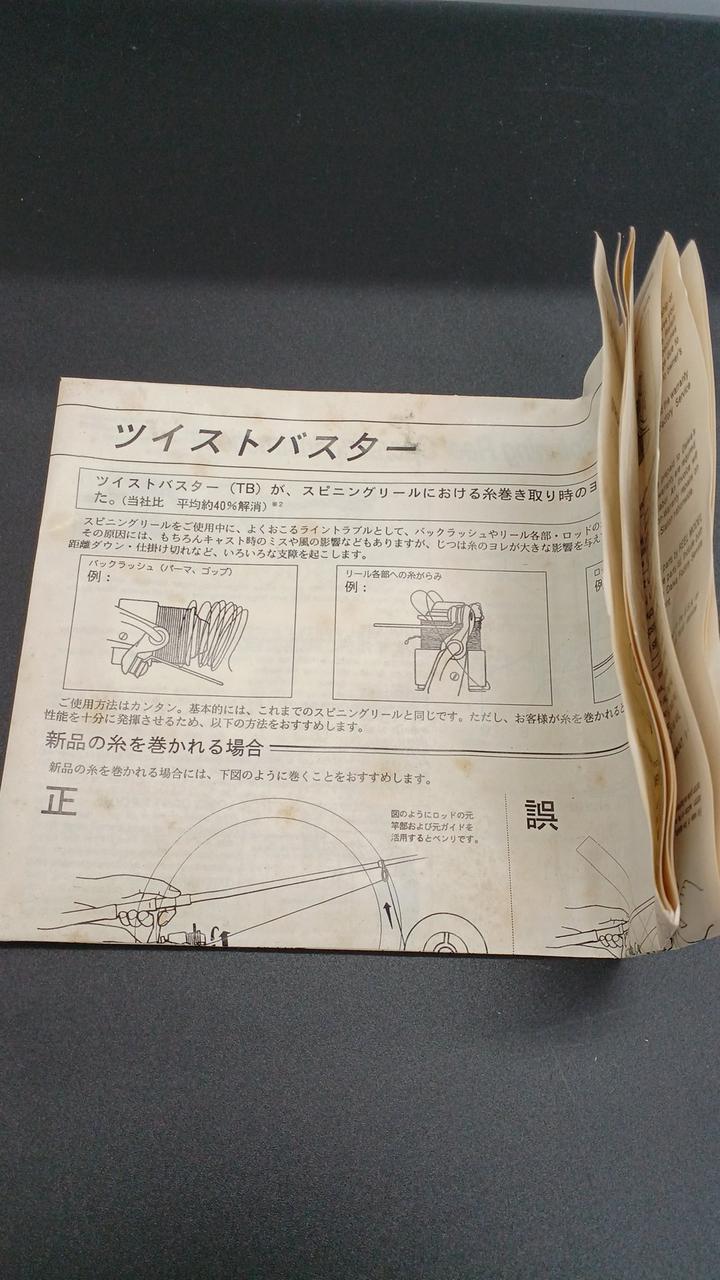 ツイストバスター
ツイストバスター（TB）が、スピニングリールにおける糸巻き取り時のヨ
た。（当社比　平均約40％解消）※2
スピニングリールをご使用中に、よくおこるライントラブルとして、バックラッシュやリール各部・ロッドの
その原因には、もちろんキャスト時のミスや風の影響などもありますが、じつは糸のヨレが大きな影響を与え
距離ダウン・仕掛け切れなど、いろいろな支障を起こします。
バックラッシュ（パーマ、ゴップ）
例：
リール各部への糸がらみ
例：
ロ
例
ご使用方法はカンタン。基本的には、これまでのスピニングリールと同じです。ただし、お客様が糸を巻かれると
性能を十分に発揮させるため、以下の方法をおすすめします。
新品の糸を巻かれる場合
新品の糸を巻かれる場合には、下図のように巻くことをおすすめします。
正
図のようにロッドの元
竿部および元ガイドを
活用するとベンリです。
誤
the warranty
Factory Service